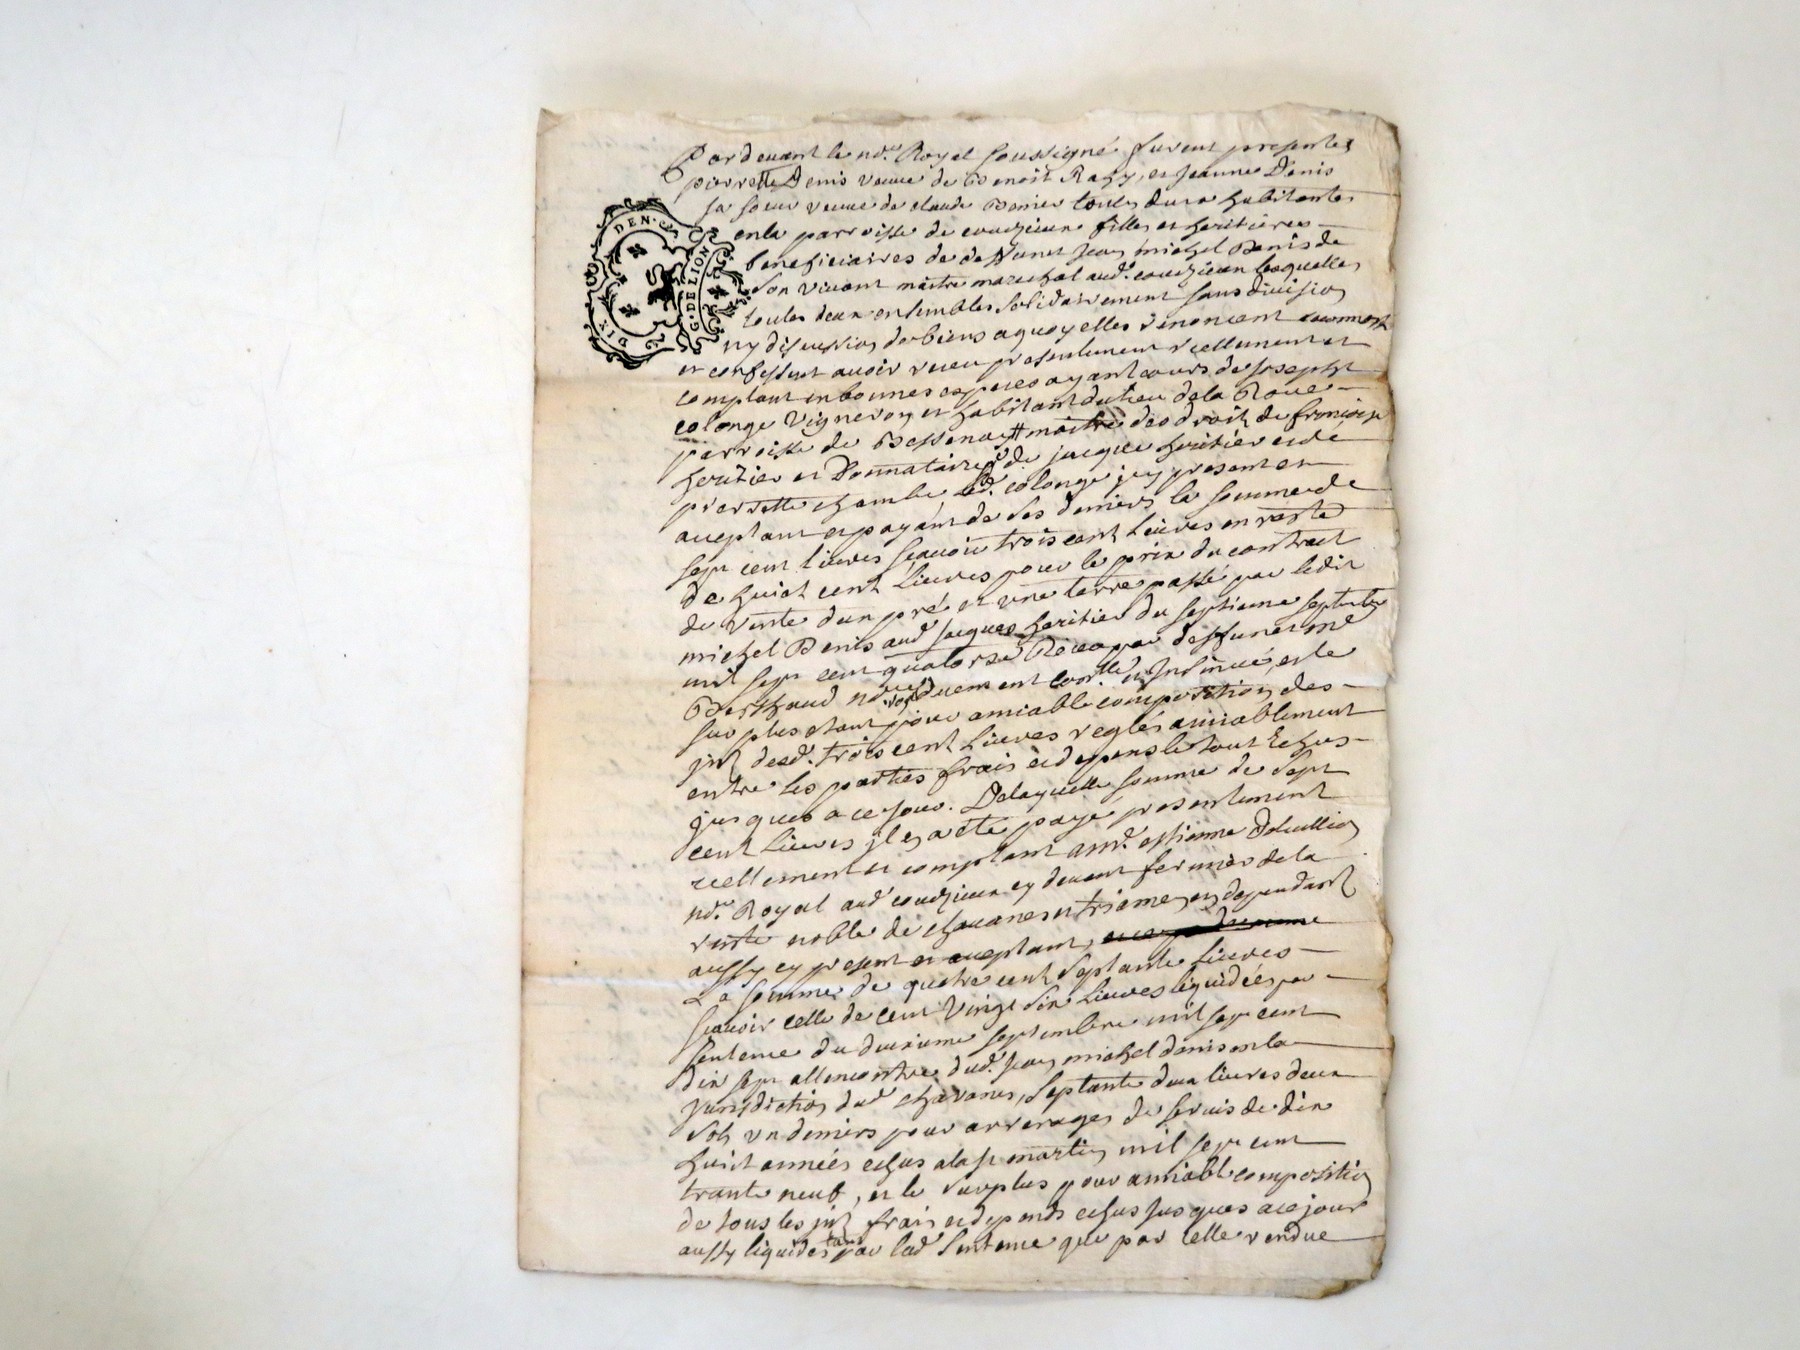 DIX DEN. G. DE LION
Par devant le nore. Royal soussigné furent presentes
pierrette Denis veuve de Benoit Ragy, et Jeanne Denis
sa soeur veuve de claude Bonier toutes deux habitantes
en la parroisse de courzieux filles et heritieres
beneficiaires de deffunct Jean michel Denis de
son vivant maitre marechal aud. courzieux lesquelles
toutes deux ensembles solidairement sans division
ny discussion de biens a quoy elles renoncent
et confessent avoir receu presentement reellement et
comptant en bonnes especes ayant cours de Joseph
colonge vigneron et habitant du lieu de la Roue
parroisse de Bessenay maitre des droits de françois
heritier et Donnataire de jacque heritier et de
pierrette chambe led. colonge jcy present et
aceptant et payant de ses deniers la somme de
sept cent livres scavoir trois cent livres en reste
de huict cent livres pour le prix du contract
de vente d'un pré et une terre passé par ledit
michel Denis aud. jacques heritier du septieme septembre
mil sept cent quatorze Receu par deffunct me
Berthaud nore. duement et Insinué, et le
surplus etant pour amiable composition des
jnts desd. trois cent livres reglés amiablement
entre les parties frais et depens le tout Echus
jusques a ce jour. Delaquelle somme de sept
cent livres jl en a eté payé presentement
reellement et comptant a mr. estienne
nore. Royal aud. courzieux cy devant fermier de la
rente noble de chavanes en dependant
aussy cy present et aceptant,
La somme de quatre cent septante livres
scavoir celle de cent vingt six livres liquidées par
sentence du deuxieme septembre mil sept cent
dix sept allencontre dud. jean michel denis en la
jurisdiction dud. chavanes, septante deux livres deux
sols un deniers pour arrerages de servis de dix
huict années echus a la st martin mil sept cent
trante neuf, et le surplus pour amiable composition
de tous les jnts frais et depends echus jusques a ce jour
aussy liquidés tant par lad. sentence que par celle rendue